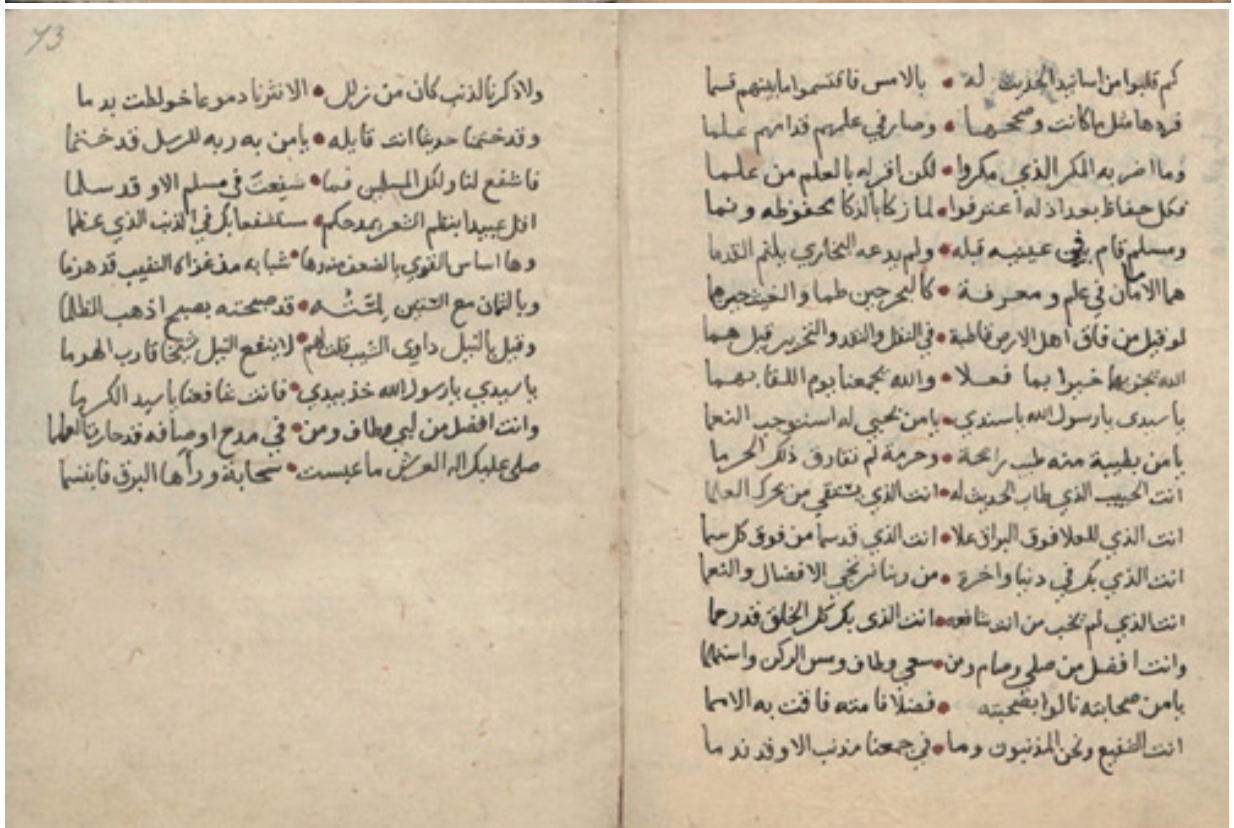 كم قلبوا من اسانيد الحديث له • بالامس فاقتسموا ما بينهم قسما
فردها مثل ما كانت وصححها • وصار في علمهم قدامهم علما
وما اضر به المكر الذي مكروا • لكن اقر له بالعلم من علما
فكل حفاظ بغداذ له اعترفوا • لما زكا بالذكا محفوظه ونما
ومسلم قام بين عينيه قبله • ولم يدعه البخاري يلثم القدما
هما الامامان في علم ومعرفة • كالبحر حين طما والغيث حين هما
لو قيل من فاق اهل الارض قاطبة • في النقل والنقد والتحرير قيل هما
الله يجزيهما خيرا بما فعلا • والله يجمعنا يوم اللقا بهما
يا سيدي يا رسول الله يا سندي • يا من يحبي له استوجب النعما
يا من بطيبة منه طيب رايحة • وحرمة لم تفارق ذلك الحرما
انت الحبيب الذي طاب الحديث له • انت الذي يستقي من بحرك العلما
انت الذي للعلا فوق البراق علا • انت الذي قد سما من فوق كل سما
انت الذي بك في دنيا واخرة • من ربنا نرتجي الافضال والنعما
انت الذي لم يخب من انت شافعه • انت الذي بك كل الخلق قد رحما
وانت افضل من صلي وصام ومن • سعي وطاف ومس الركن واستلما
يا من صحابته نالوا بصحبته • فضلا فامته فاقت به الامما
انت الشفيع ونحن المذنبون وما • في جمعنا مذنب الا وقد ندما
73
ولا ذكرنا لذنب كان من زلل • الا نثرنا دموعا خولطت بدما
وقد ختمنا حديثا انت قايله • يا من به ربه للرسل قد ختما
فاشفع لنا ولكل المسلمين فما • شفعت في مسلم الا وقد سلما
اقل عبيدا بنظم الشعر يمدحكم • مستشفعا بك في الذنب الذي عظما
وها اساس القوي بالضعف منه وها • شبابه مذ غزاه الشيب قد هزما
وبالثمان مع الستين لمته • قد صبحته بصبح اذهب الظلما
وقيل بالنيل داوي الشيب قلت لهم • لا ينفع النيل شيخا قارب الهرما
يا سيدي يا رسول الله خذ بيدي • فانت شافعنا يا سيد الكرما
وانت افضل من لبي وطاف ومن • في مدح اوصافه قد حارت العلما
صلى عليك اله العرش ما عبست • سحابة وراها البرق فابتسما